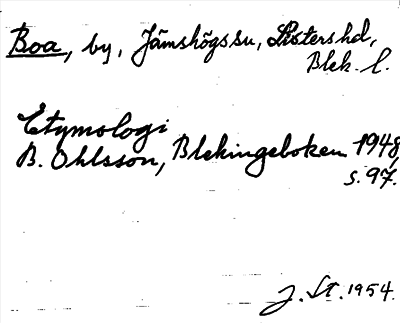 Boa, by, Jämshögs su, Listers hd,
Blek. l.
Etymologi
B. Ohlsson, Blekingeboken 1948,
s. 97.
J. St. 1954.